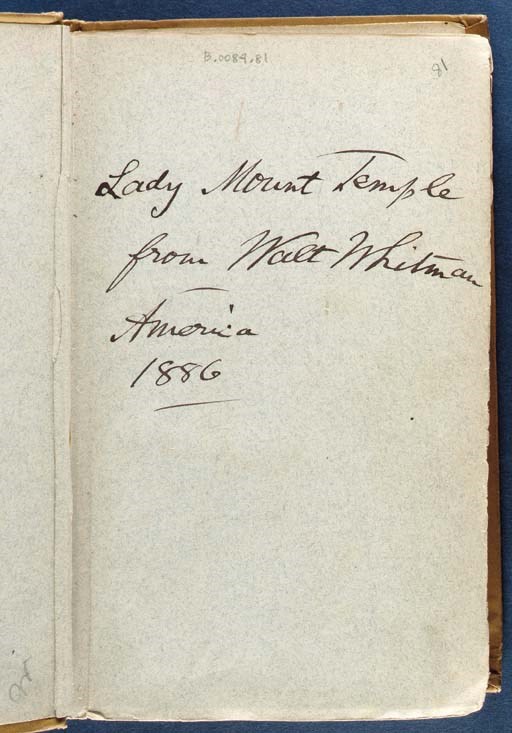 B.0084.81
81
Lady Mount Temple
from Walt Whitman
America
1886